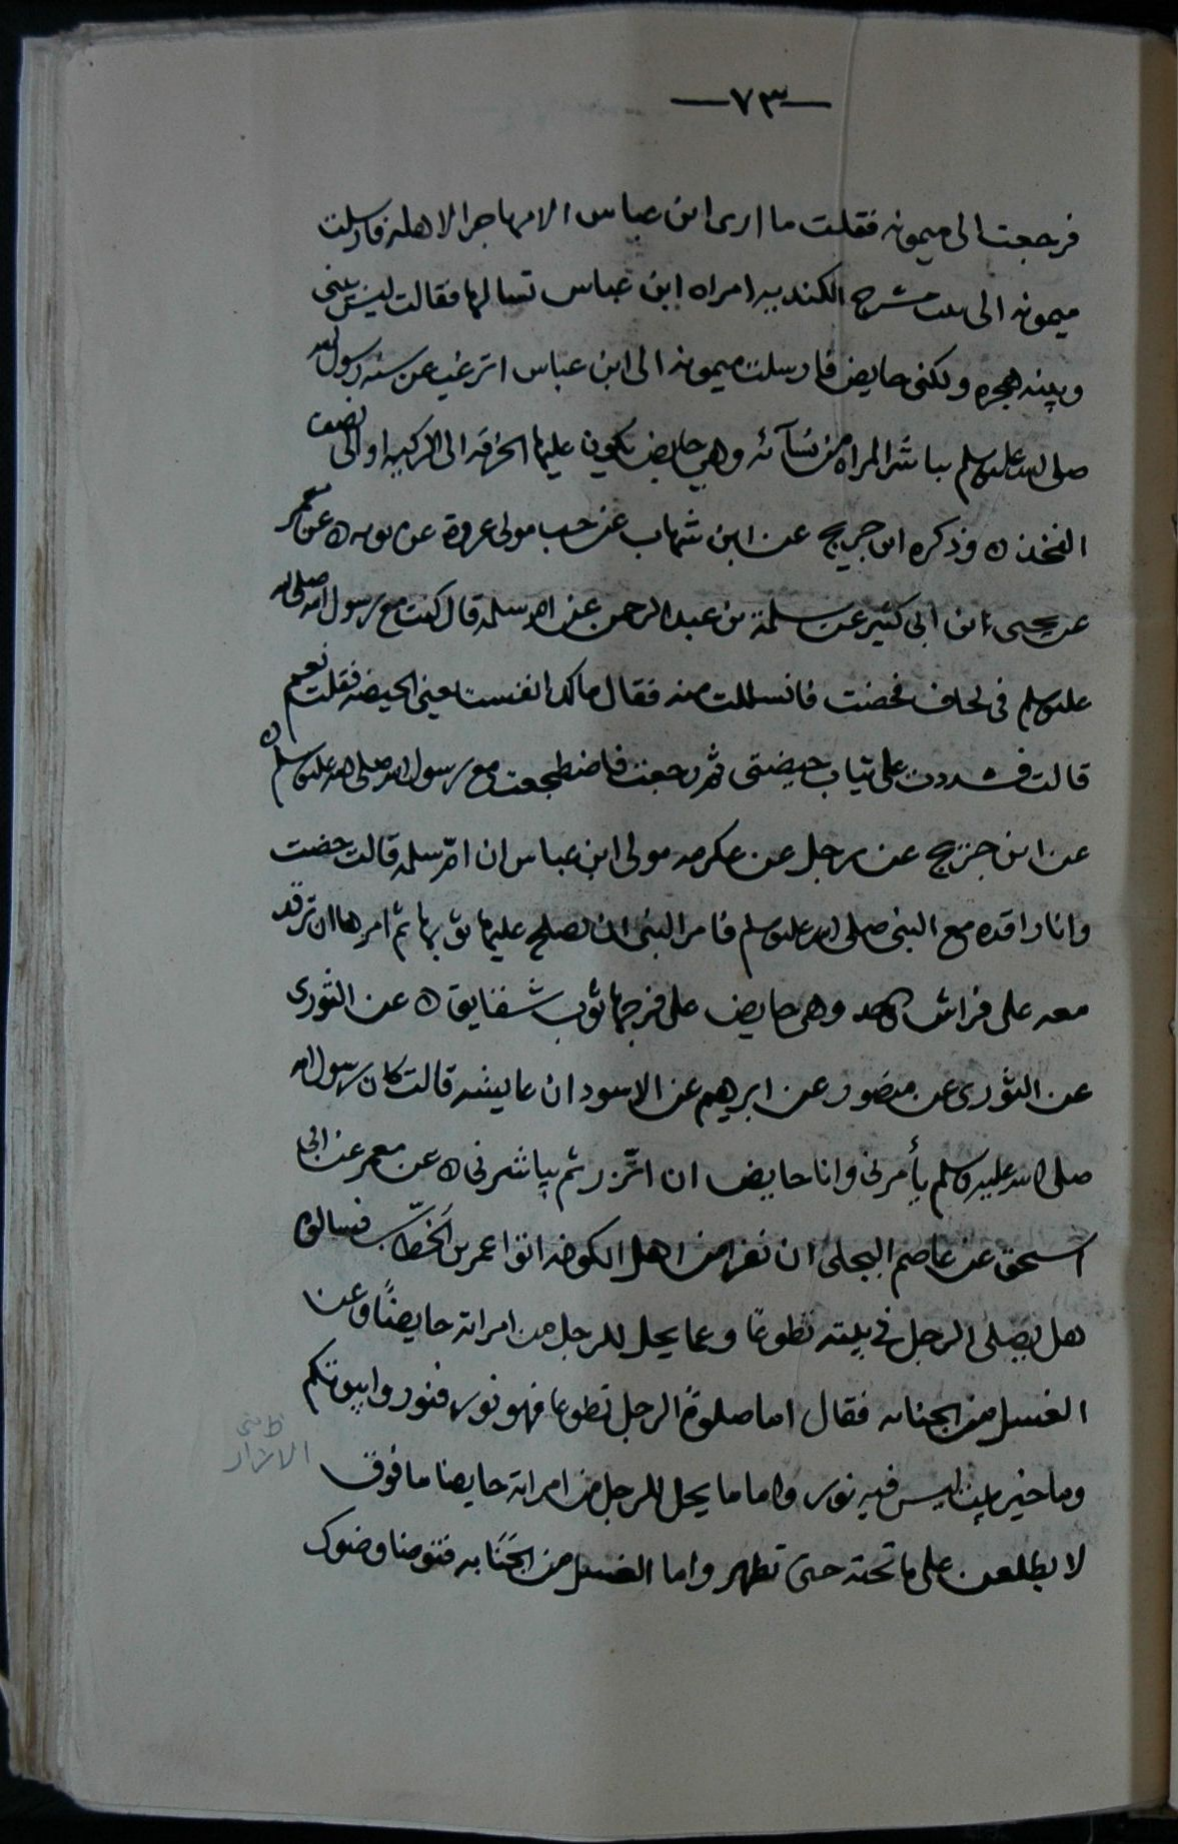 —٧٣—
فرجعت الى ميمونه فقلت ما ارى ابن عباس الا مهاجرا لاهله فارسلت
ميمونه الى بنت مشرح الكنديه امراه ابن عباس تسالها فقالت ليس بينى
وبينه هجره ولكنى حايض فارسلت ميمونه الى ابن عباس اترغب عن سنه رسول الله
صلى الله عليه وسلم يباشر المراه من نسآئه وهى حايض تكون عليها الخرقه الى الركبه او الى نصف
الفخذ ه وذكره ابن جريج عن ابن شهاب عن حبيب مولى عروة عن ندبه ه عن معمر
عن يحيى بن ابى كثير عن سلمة بن عبد الرحمن عن ام سلمه قال كنت مع رسول الله صلى الله
عليه وسلم فى لحاف فحضت فانسللت منه فقال مالك انفست يعنى الحيضه فقلت نعم
قالت فشددت على ثياب حيضتى ثم رجعت فاضطجعت مع رسول الله صلى الله عليه وسلم ه
عن ابن جريج عن رجل عن عكرمه مولى ابن عباس ان امّ سلمه قالت حضت
وانا راقده مع النبى صلى الله عليه وسلم فامر النبى ان تصلح عليها ثوبها ثم امرها ان ترقد
معه على فراش واحد وهى حايض على فرجها ثوب شقايق ه عن الثورى
عن الثورى عن منصور عن ابرهيم عن الاسود ان عايشه قالت كان رسول الله
صلى الله عليه وسلم يأمرنى وانا حايض ان اتّزر ثم يباشرنى ه عن معمر عن ابى
اسحق عن عاصم البجلى ان نفرا من اهل الكوفه اتوا عمر بن الخطّاب فسالوه
هل يصلى الرجل فى بيته تطوعًا وعما يحل للرجل من امراته حايضًا وعن
الغسل من الجنابه فقال اما صلوة الرجل تطوعا فهو نور فنوروا بيوتكم
وما خير بيت ليس فيه نور واما ما يحل للرجل من امراته حايضا ما فوق
الازار
لا يطلعن على ما تحته حتى تطهر واما الغسل من الجَنَابه فتوضا وضوك